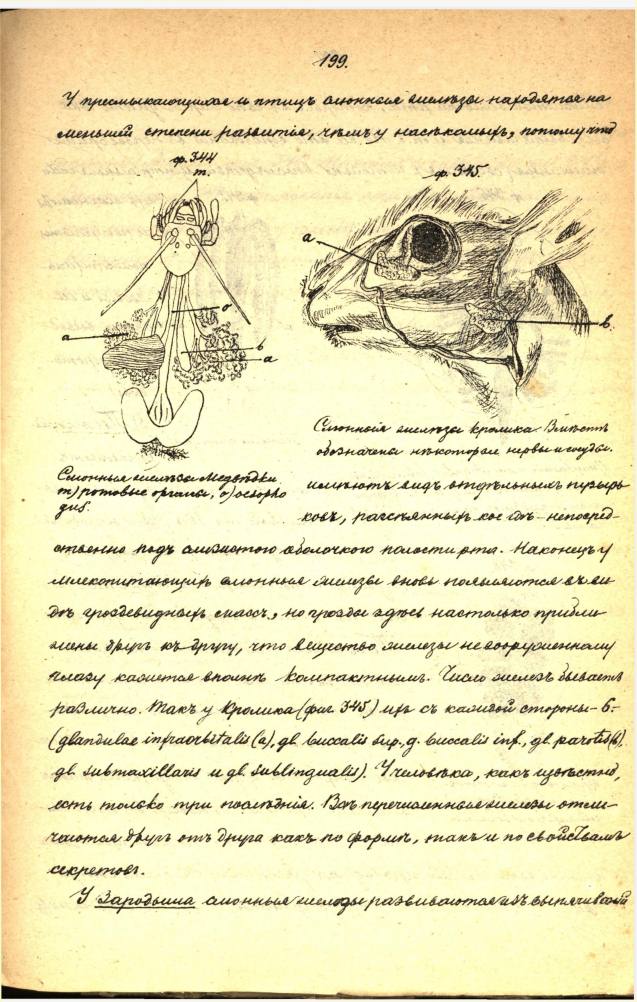 199.
У пресмыкающихся и птицъ слюнныя железы находятся на
меньшей степени развитія, чѣмъ у насѣкомыхъ, потому что
ф. 344
m.
ф. 345.
a
b.
a
o
b
a
Слюнныя железы кролика. Вмѣстѣ
обозначены нѣкоторые нервы и сосуды.
Слюнныя железы Медвѣдки.
m) ротовые органы, o)
имѣютъ видъ отдѣльныхъ пузырь
ковъ, разсѣянныхъ кое гдѣ непосред-
ственно подъ слизистого оболочкого полости рта. Наконецъ у
млекопитающихъ слюнныя железы вновь появляются въ ви
дѣ гроздевидныхъ массъ, но грозды здѣсь настолько прибли
жены другъ къ другу, что вещество железы невооруженному
глазу кажется вполнѣ компактнымъ. Число железъ бываетъ
различно. Такъ у Кролика (фиг. 345) ихъ съ каждой стороны - 6-
(glandulae infraorbitalis (a), gl. buccalis sup., g. buccalis inf., gl. parotis (b),
gl. submaxillaris и gl. sublingualis). У человѣка, какъ извѣстно,
есть только три послѣднія. Всѣ перечисленныя железы отли
чаются другъ отъ друга какъ по формѣ, такъ и по свойствамъ
секретовъ.
У Зародыша слюнныя железы развиваются изъ выпячиваній